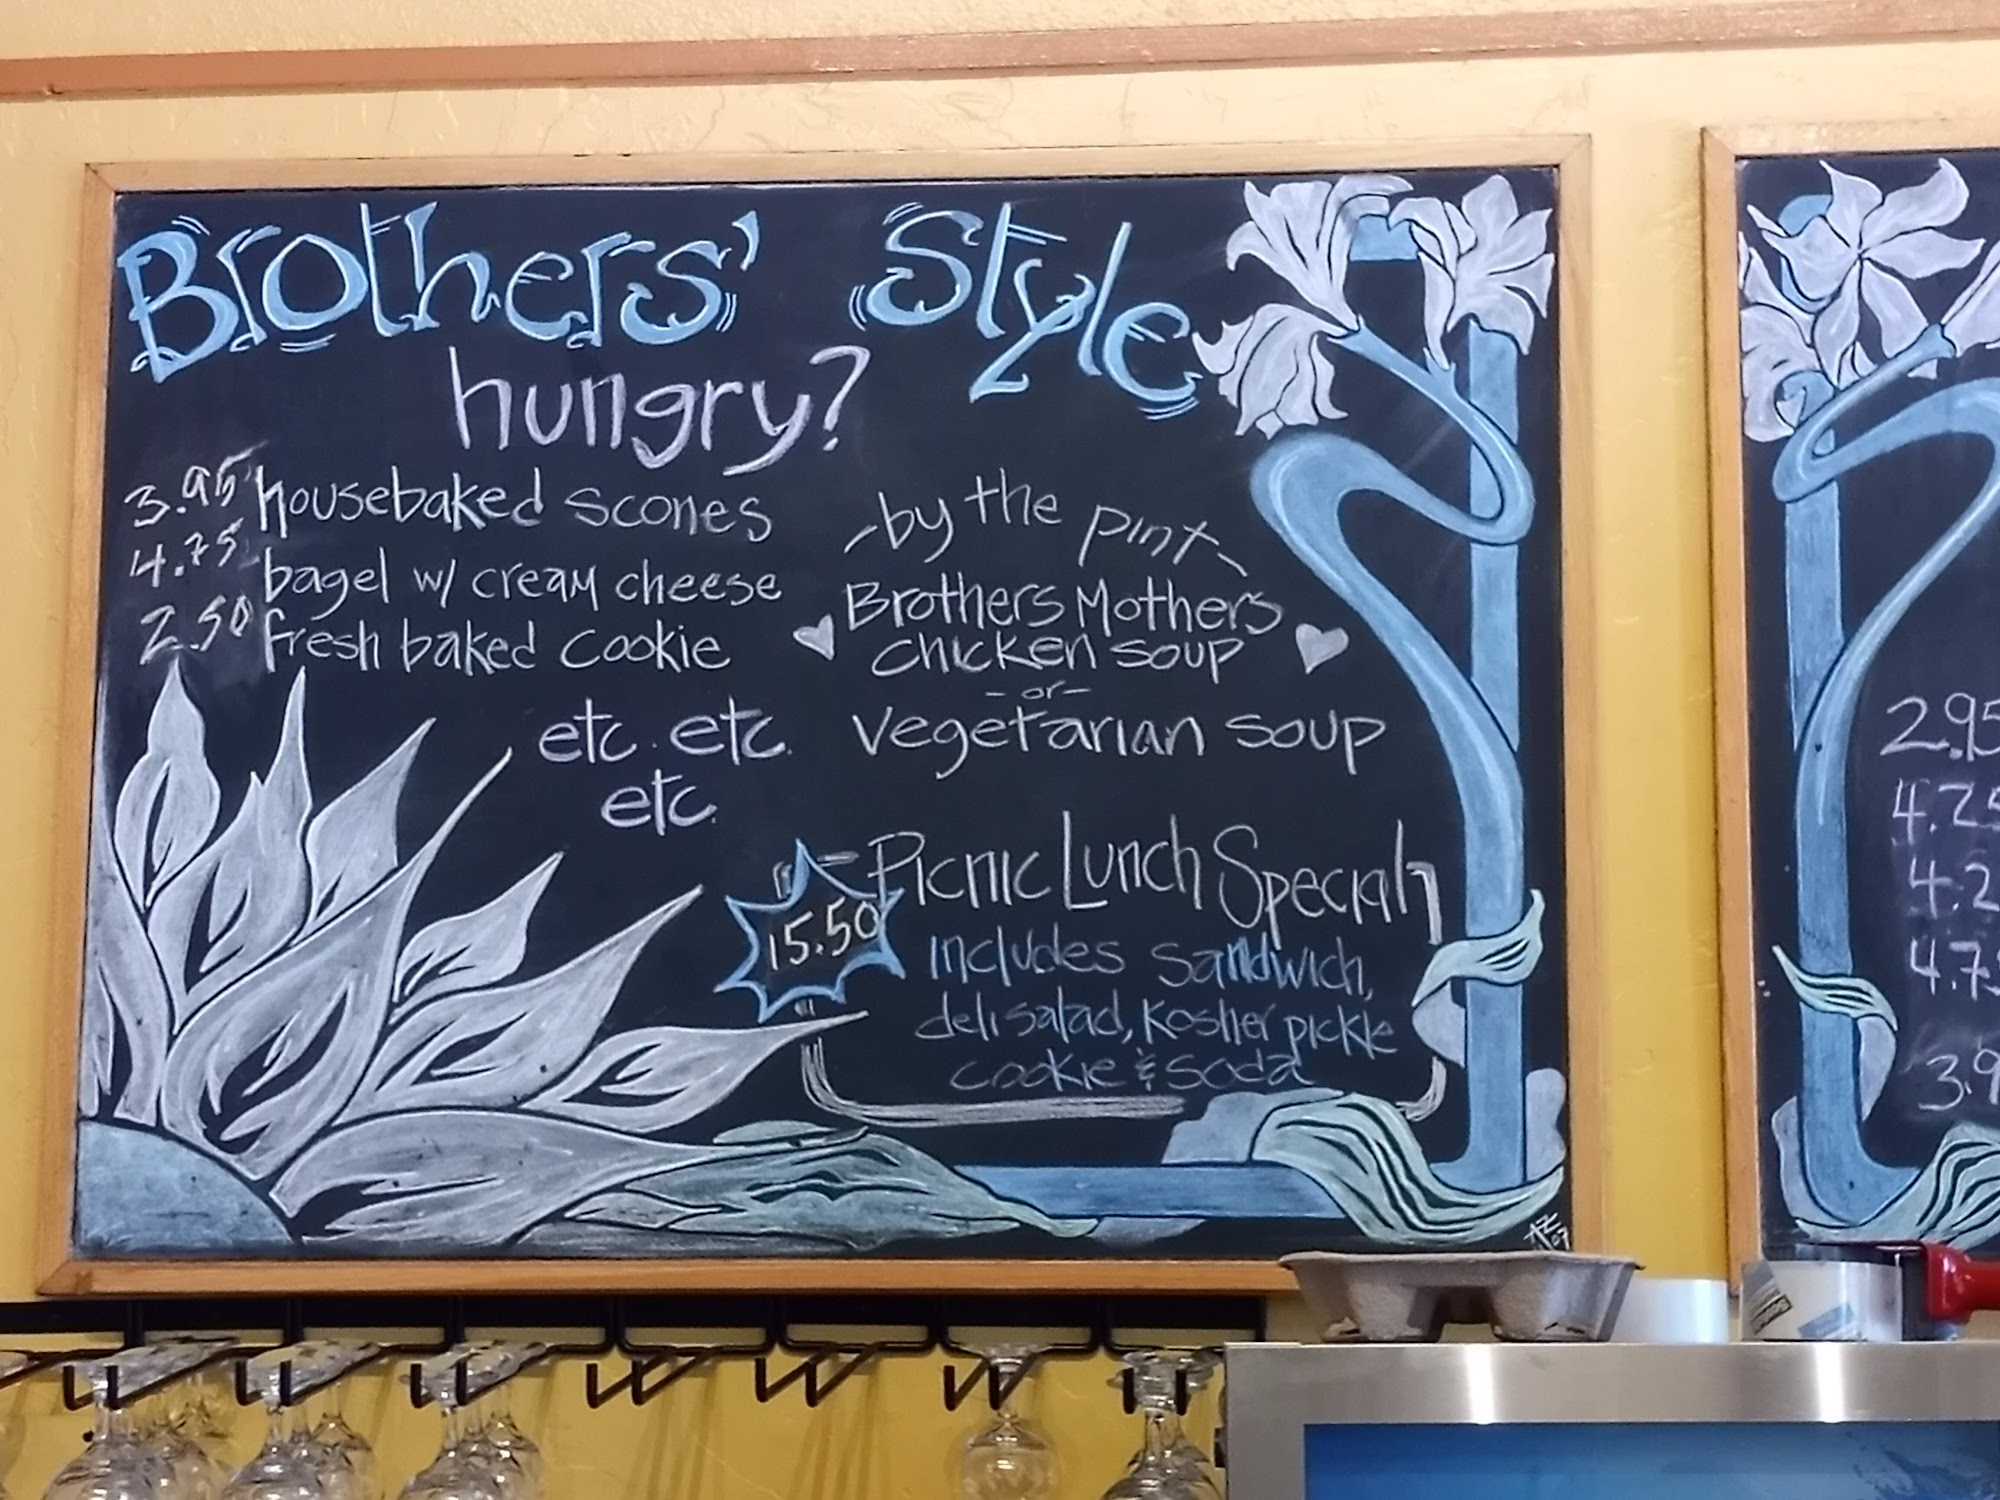 Brothers' Style
hungry?
3.95 housebaked scones
4.75 bagel w/ cream cheese
2.50 fresh baked cookie
etc. etc.
etc.
-by the pint-
Brothers Mothers
chicken soup
-or-
vegetarian soup
15.50
Picnic Lunch Special
includes sandwich,
deli salad, kosher pickle
cookie & soda
2.95
4.25
4.2
4.75
3.9